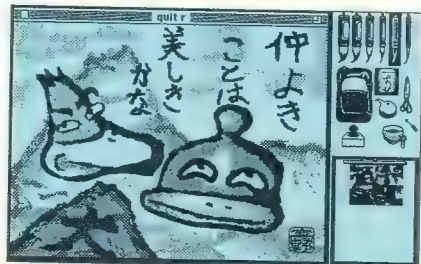 quit r
仲よき
ことは
美しき
かな